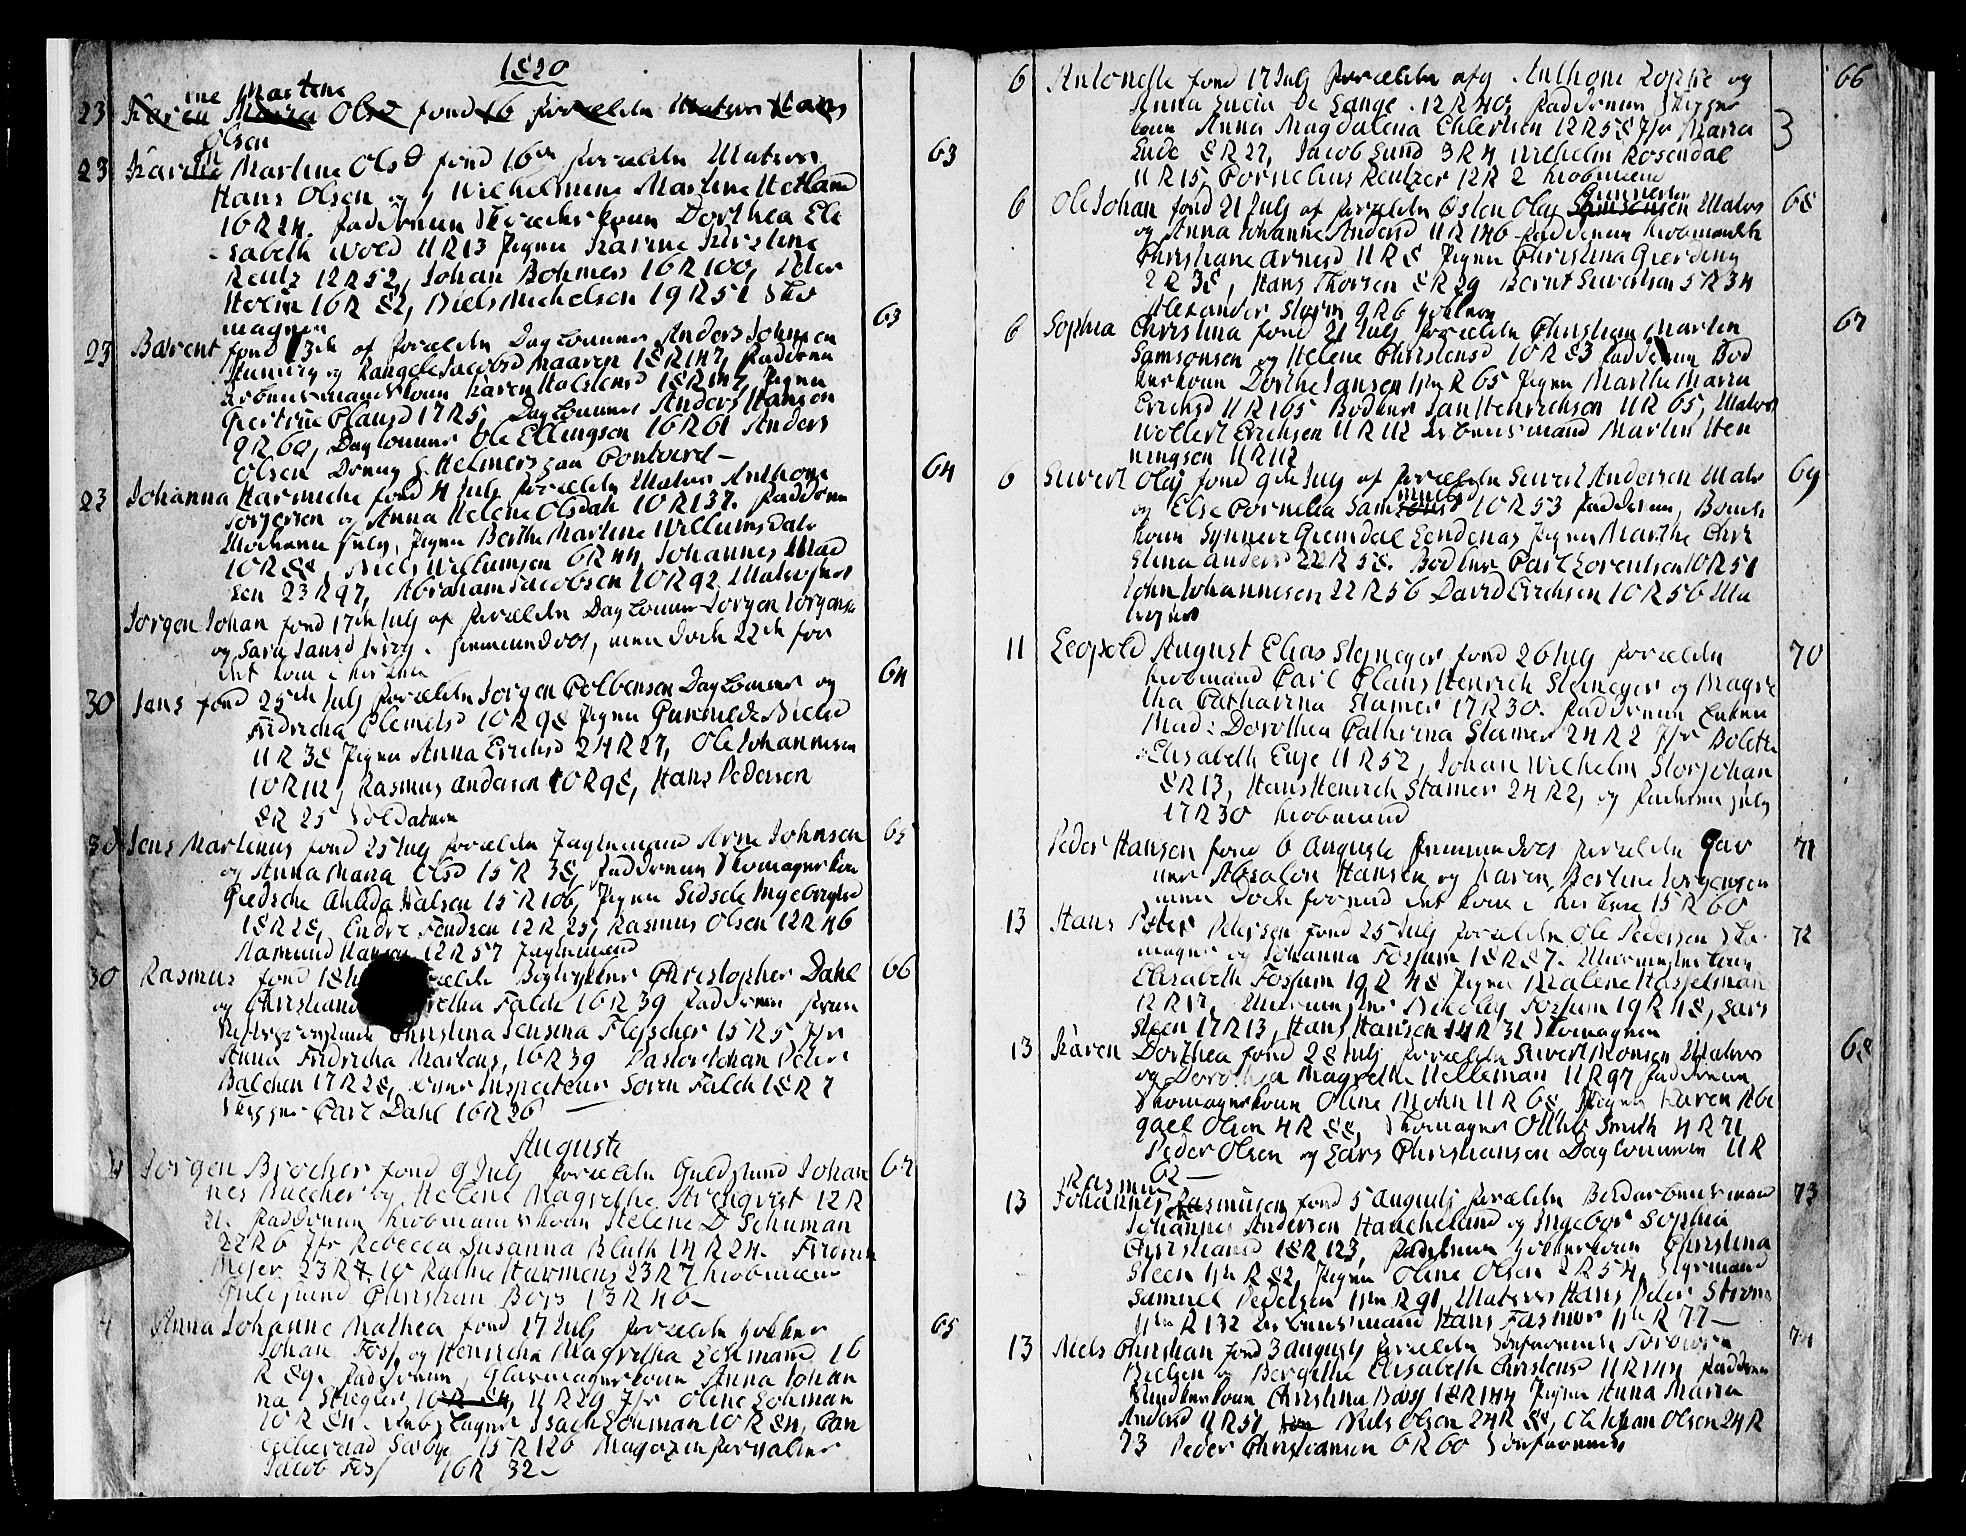 1820
ine Martine
23 Karen Maria Olsd fond 16 forældre Matros Hans
Olsen
23 Karine Martine Olsd fond 16de forældre Matros 63
Hans Olsen og Wilhelmine Martine Hetland
16 R 24. fadderne Kone Dorthea Eli
sabeth Wold 11 R 13 Pigen Karine Kirstine
Reutz 12 R 52, Johan Bohmers 16 R 100, Peder
Holm 16 R 82, Niels Michelsen 19 R 51 Sko
magere 63
23 Barent fond 13de af forældre Daglönner Anders Johnsen
og Rangele Jacobsd Maaren 18 R 147, fadderne
Arbeidsmands kone Karen Halstensd 18 R 147, Pigen
Giertrue Clausd 17 R 5, Daglönner Anders Hansen
9 R 60, Daglönner Ole Ellingsen 16 R 61 Anders
Olsen Dreng Helmers paa Contoired – 64
23 Johanna Harmiche fond 4 July forældre Matros Anthone
Jörgersen og Anna Helene Olsdatr 10 R 137. fadderne
Moderen selv, Pigen Berthe Martine Willumsdatr
10 R 88, Niels Willumsen 6 R 44, Johannes Mad
sen 23 R 97, Abraham Jacobsen 10 R 92 Matroser
Jörgen Johan fond 17de July af forældre Daglönner Jörgen Jörgensen
og Sara Jansd. hjemmendöbt, men döde 22de för
det kom i kirken 64
30 Jens fond 25de July forældre Jörgen Colbensen Daglönner og
Fridricha Clemetsd 10 R 98 Pigen Gunnilde Nielsd
11 R 38 Pigen Anna Erichsd 24 R 27, Ole Johannesen
10 R 112, Rasmus Andersen 10 R 98, Hans Pedersen
8 R 25 Soldater
30 Jens Martinus fond 25 July forældre Arne Johnsen 65
og Anna Maria Olsd 15 R 38, fadderne Skomager kone
Giedsche Ahlida Halsen 15 R 106, Pigen Sidsele Ingebrigtsd
18 R 28, Endre Endresen 12 R 25, Rasmus Olsen 12 R 46
Hansen 12 R 57
30 Rasmus fond 18 forældre Christopher Dahl 66
og Christiane Falch 16 R 39 fadderne
Christina Jensina Fleischer 15 R 5 Jfr
Anna Fridricha Martens, 16 R 39 Pastor Johan Peter
Balchen 17 R 28, Inspecteur Sören Falch 18 R 7
Skipper Carl Dahl 16 R 26 —
Augusti
4 Jörgen Brocher fond 9 July forældre Guldsmed Johan 67
nes Buccher og Helene Magrethe Strenqvist 12 R
21. fadderne kiøbmands kone Helene D Schuman
22 R 6 Jfr Rebecca Susanna Bluth 14 R 24. Fridrich
Mejer 23 R 7. Harmens 23 R 7 kiøbmænd
Guldsmed Christian Boys 13 R 40 –
4 Anna Johanne Mathea fond 17 July forældre 65
Johan Foss og Henricha Magretha Lohmand 16
R 89. fadderne, Glarmager kone Anna Johan
na Stiegler, 10 R 84, 11 R 29 Jfr Oline Lohman
10 R 84. Isach Lohman 10 R 84, Can
Sæbye 15 R 126 Magazin forvalter
Jacob Foss 16 R 32 –
6 Antonette fond 17 July forældre afg. Anthone Zopfhe og 66
Anna Lucia De Lange. 12 R 40. fadderne Skipper
kone Anna Magdalena Ehlertsen 12 R 58 Jfr Maria 3
Lude 8 R 27, Jacob Lund 3 R 4 Wilhelm Rosendal
11 R 15, Cornelius Reutzer 12 R 2 kiøbmænd
Gunnersen
6 Ole Johan fond 21 July af forældre Osten Olaj Samsonsen Matros 68
og Anna Johanne Andersd 11 R 146 fadderne
Christiane Arnesd 11 R 8 Pigen Christina Gierding
2 R 38, Hans Thorsen 8 R 29 Bernt Siwertsen 5 R 34
Alexander Storm 9 R 6
6 Sophia Christina fond 21 July forældre Christian Martin 67
Samsonsen og Helene Christensd 10 R 83 fadderne Bod
kerkone Dorthe Jansen 11 R 65 Pigen Marthe Maria
Erichsd 11 R 165 Bödker Jan Henrichsen 11 R 65, Matros
Wollert Erichsen 11 R 112 Arbeidsmand Martin Hen
ningsen 11 R 112
6 Siwert Olaj fond 9de July af forældre Siwert Andersen Matr 69
og Else Cornelia 10 R 53 fadderne,
kone Synneve Grimdal Lendenas Pigen Marthe Chri
stina Andersd 22 R 58. Bödker Carl Lorentsen 10 R 51
John Johannesen 22 R 56 David Erichsen 10 R 56 Ma
troser
11 Leopold August Elias Stejneger fond 26 July forældre 70
kiøbmand Carl Claus Henrich Stejneger og Magre
tha Catharina Stamer 17 R 30. fadderne Enken
Mad: Dorothea Catherina Stamer 24 R 2 Jfr Bolette
Elisabeth Euje 11 R 52, Johan Wilhelm Storjohan
8 R 13, Hans Henrich Stamer 24 R 2, og faderen selv
17 R 30 kiøbmænd
Peder Hansen fond 6 Augusti hjemmendöbt forældre Gar 71
ver Absalon Hansen og Karen Bertine Jörgensen
men döde forend det kom i kirken 15 R 60
13 Hans Peter Petersen fond 25 July forældre Ole Pedersen Sko 72
mager og Johanna Fossum 18 R 87. Murmester kone
Elisabeth Fossum 19 R 48 Pigen Malene Hasselman
12 R 17, Murmester Nikolaj Fossum 19 R 48, Lars
Steen 17 R 13, Hans Hansen 14 R 31 Skomagere
13 Karen Dorthea fond 28 July forældre Siwert Monsen Matros 68
og Dorothea Magrethe Helleman 11 R 97 fadderne
Skomagerkone Oline Mohn 11 R 68, Pigen Karen Abi
gael Olsen 4 R 88, Skomager Otthe Smith 4 R 71
Peder Olsen og Lars Christiansen Daglönnere 11 R
62 —
Rasmus
13 Johannes Rasmusen fond 5 Augusti forældre Arbeidsmand 73
Johannes Andersen Haukeland og Ingebor Sophia
Christiansd 18 R 123, fadderne kone Christina
Steen 11 R 82, Pigen Oline Olsen 2 R 54, Styrmand
Samuel Pedersen 11 R 91, Matros Hans Peter Ström
11 R 132 Arbeidsmand Hans Fasmer 11 R 77 –
13 Niels Christian fond 3 Augusti forældre 74
Nielsen og Bergithe Elisabeth Christensd 11 R 144 fadderne
kone Christina Bass 18 R 144 Pigen Anna Maria
Andersd 11 R 51 Niels Olsen 24 R 88, Ole Johan Olsen 24 R
73 Peder Christiansen 6 R 60